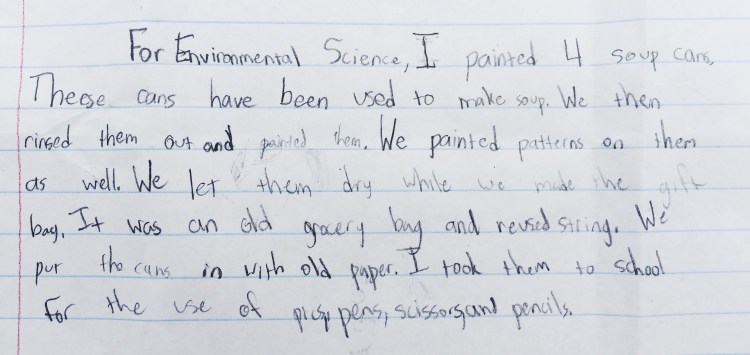 For Environmental Science, I painted 4 soup cans.
Theese cans have been used to make soup. We then
rinsed them out and painted them. We painted patterns on them
as well. We let them dry while we made the gift
bag. It was an old grocery bag and reused string. We
put the cans in with old paper. I took them to school
for the use of pens, scissors, and pencils.